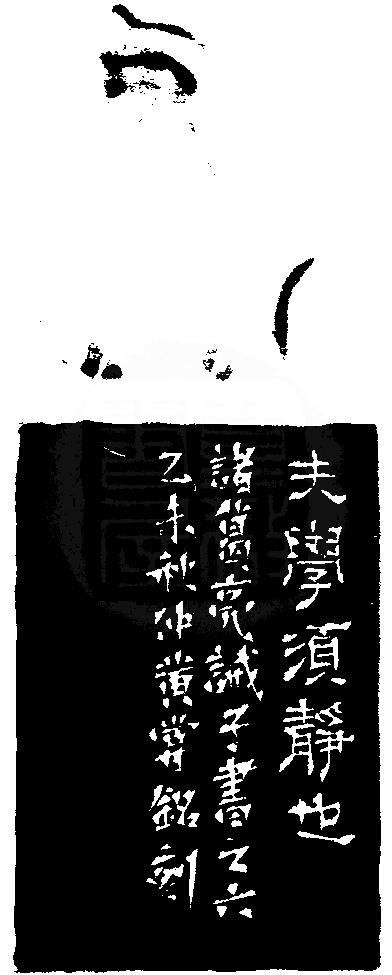 夫學須靜也
諸葛亮誡子書之六
乙未秋仲黃嘗銘刻